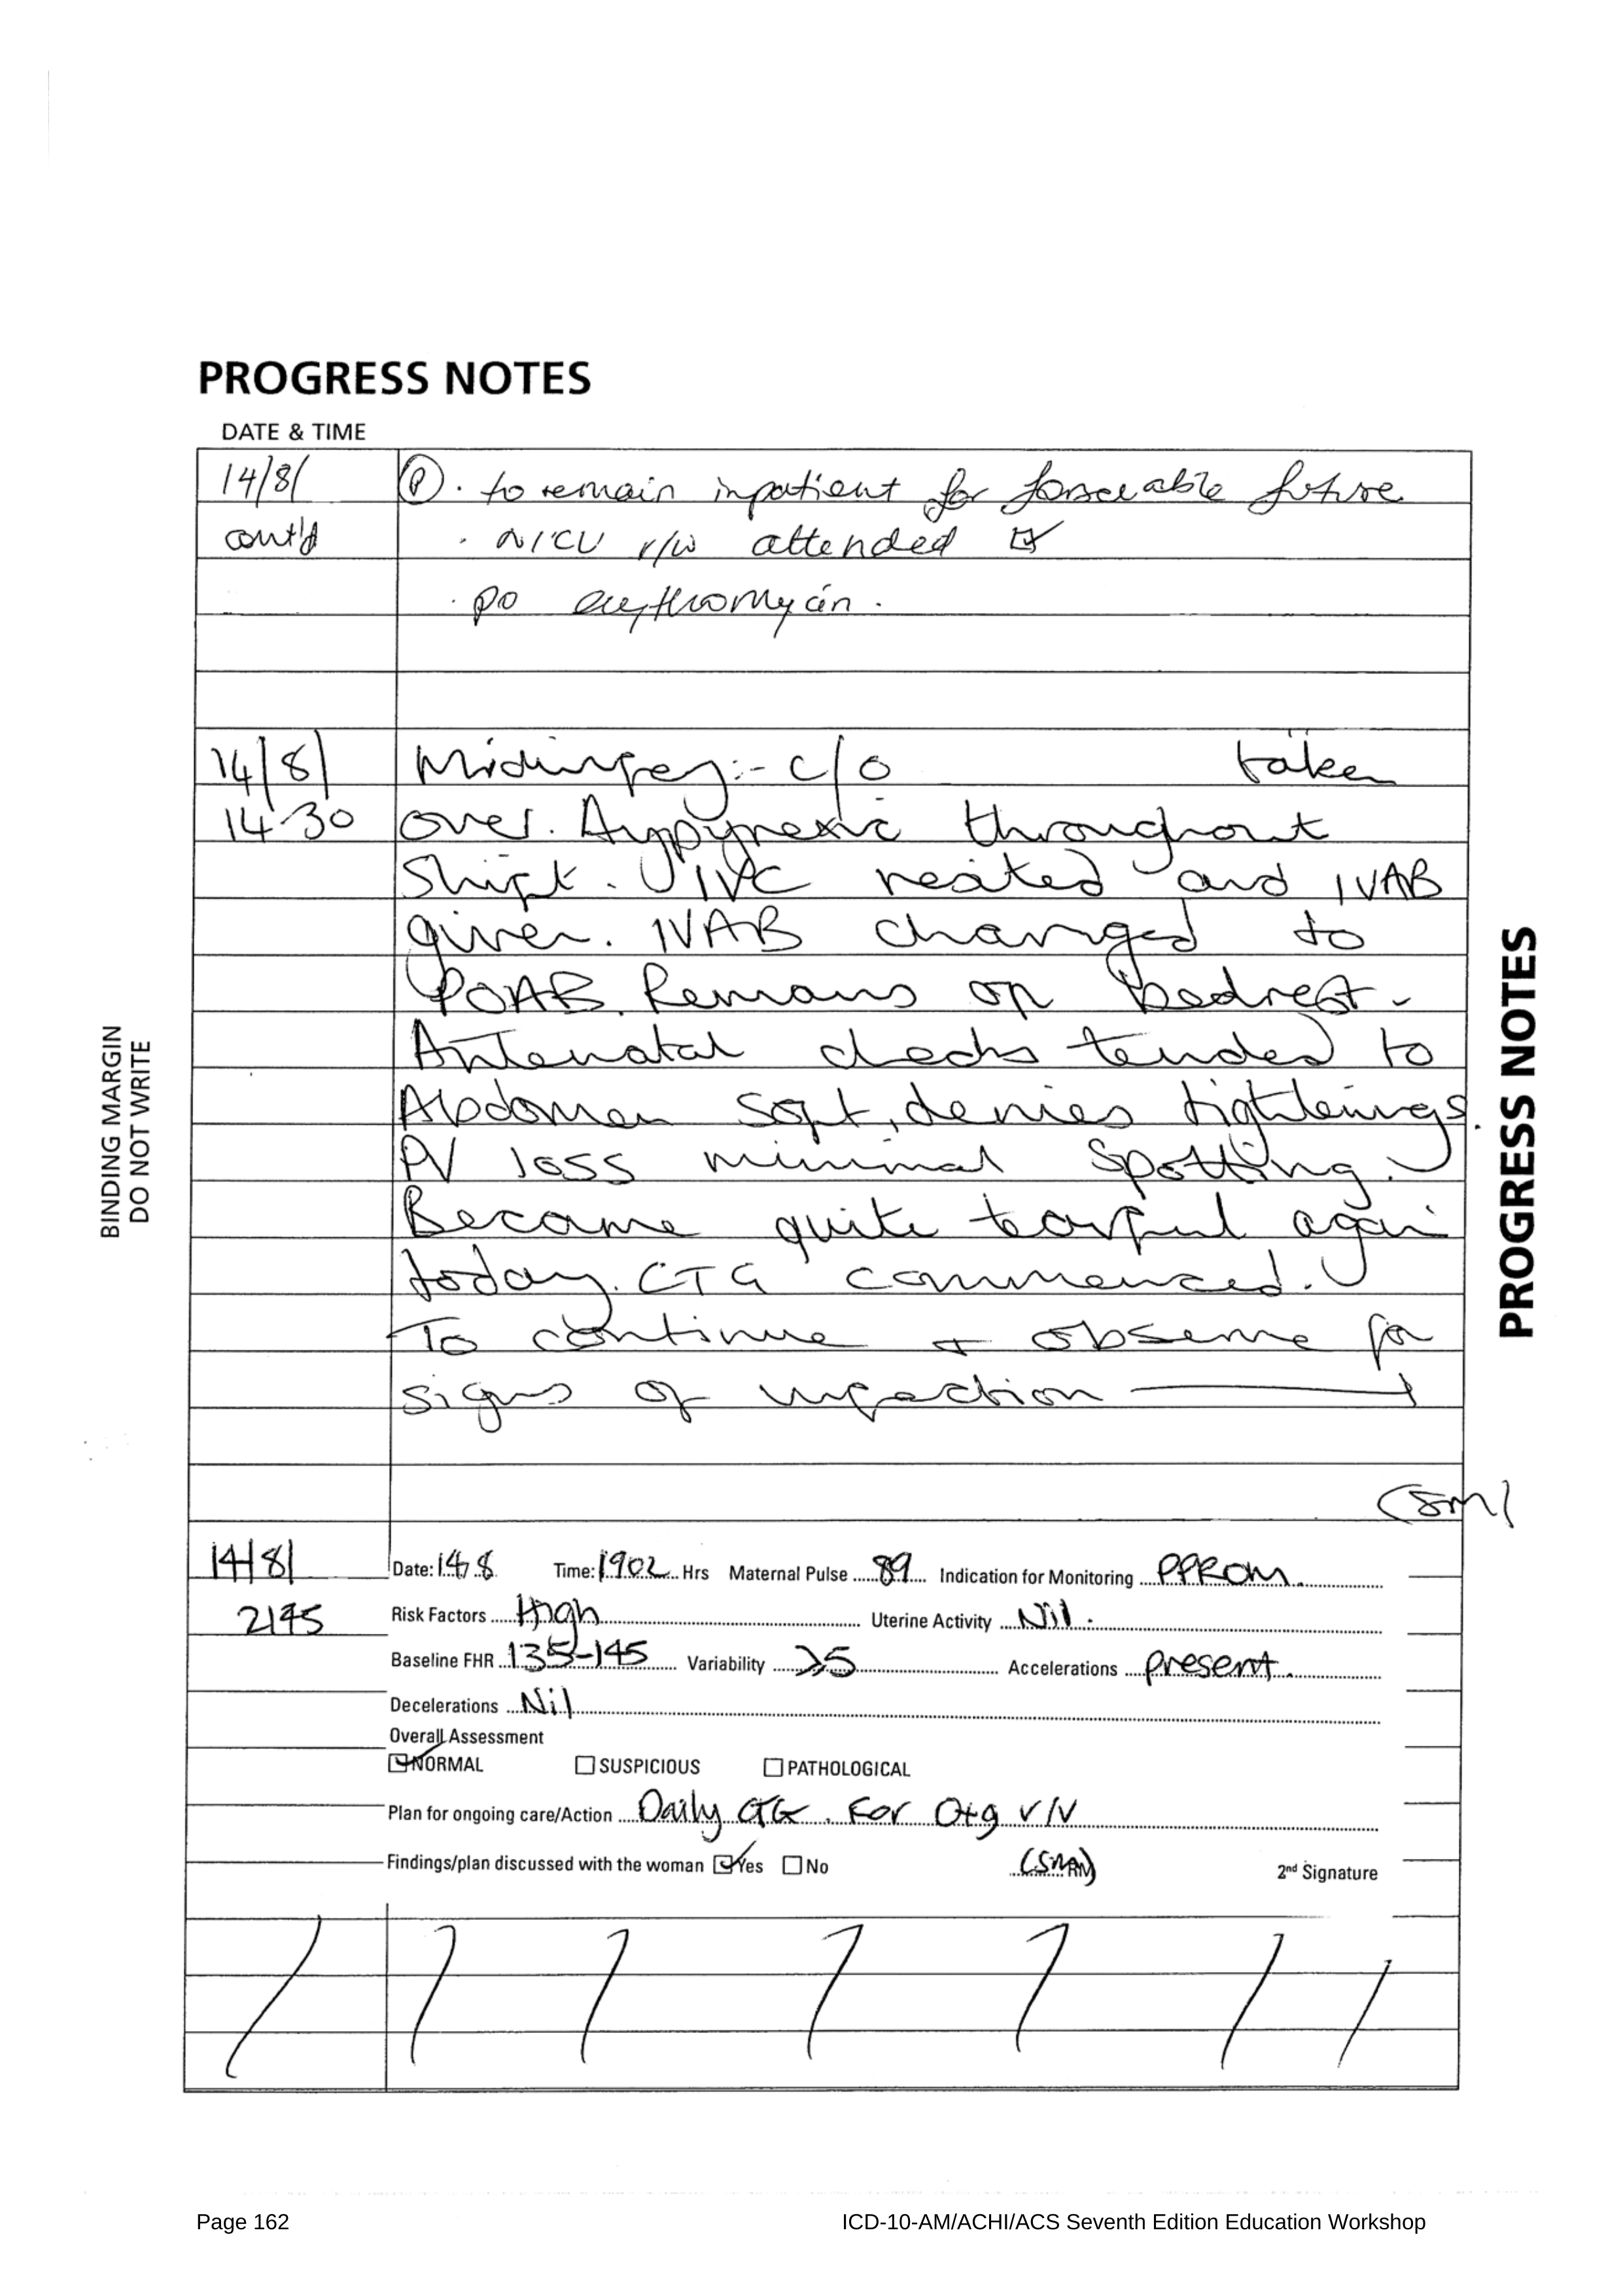 PROGRESS NOTES
DATE & TIME
14/8/ (P). to remain inpatient for forseeable future
cont'd . NICU r/w attended ☑
. po erythromycin.
14/8/ Midwifery:- c/o taken
14.30 over. Apyrexic throughout
shift. IVC resited and IVAB
given. IVAB changed to
POAB. Remains on bedrest-
Antenatal checks tended to
Abdomen soft, denies tightenings.
PV loss minimal spotting.
Became quite tearful again
today. CTG commenced.
To continue + observe for
signs of infection
(SM)
14/8/ Date: 14/8 Time: 1902 Hrs Maternal Pulse 89 Indication for Monitoring PPROM.
2145 Risk Factors High Uterine Activity Nil.
Baseline FHR 135-145 Variability >5 Accelerations present.
Decelerations Nil
Overall Assessment
☑ NORMAL ☐ SUSPICIOUS ☐ PATHOLOGICAL
Plan for ongoing care/Action Daily CTG. For O+g r/v
Findings/plan discussed with the woman ☑ Yes ☐ No (SRM) 2nd Signature
BINDING MARGIN
DO NOT WRITE
PROGRESS NOTES
Page 162 ICD-10-AM/ACHI/ACS Seventh Edition Education Workshop